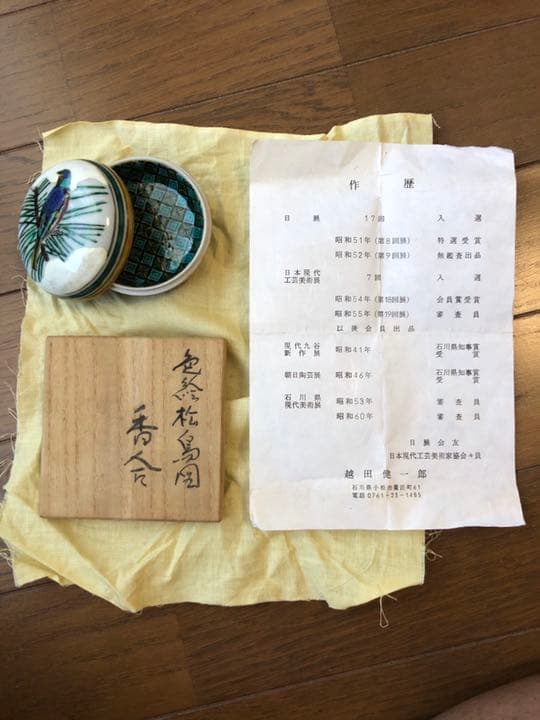 色絵松鳥図
香合
作歴
日展 17回 入選
昭和51年(第8回展) 特選受賞
昭和52年(第9回展) 無鑑査出品
日本現代工芸美術展 7回 入選
昭和54年(第18回展) 会員賞受賞
昭和55年(第19回展) 審査員
以後会員出品
現代九谷新作展 昭和41年 石川県知事賞受賞
朝日陶芸展 昭和46年 石川県知事賞受賞
石川県現代美術展 昭和53年 審査員
昭和60年 審査員
日展会友
日本現代工芸美術家協会々員
越田健一郎
電話 0761-23-1485